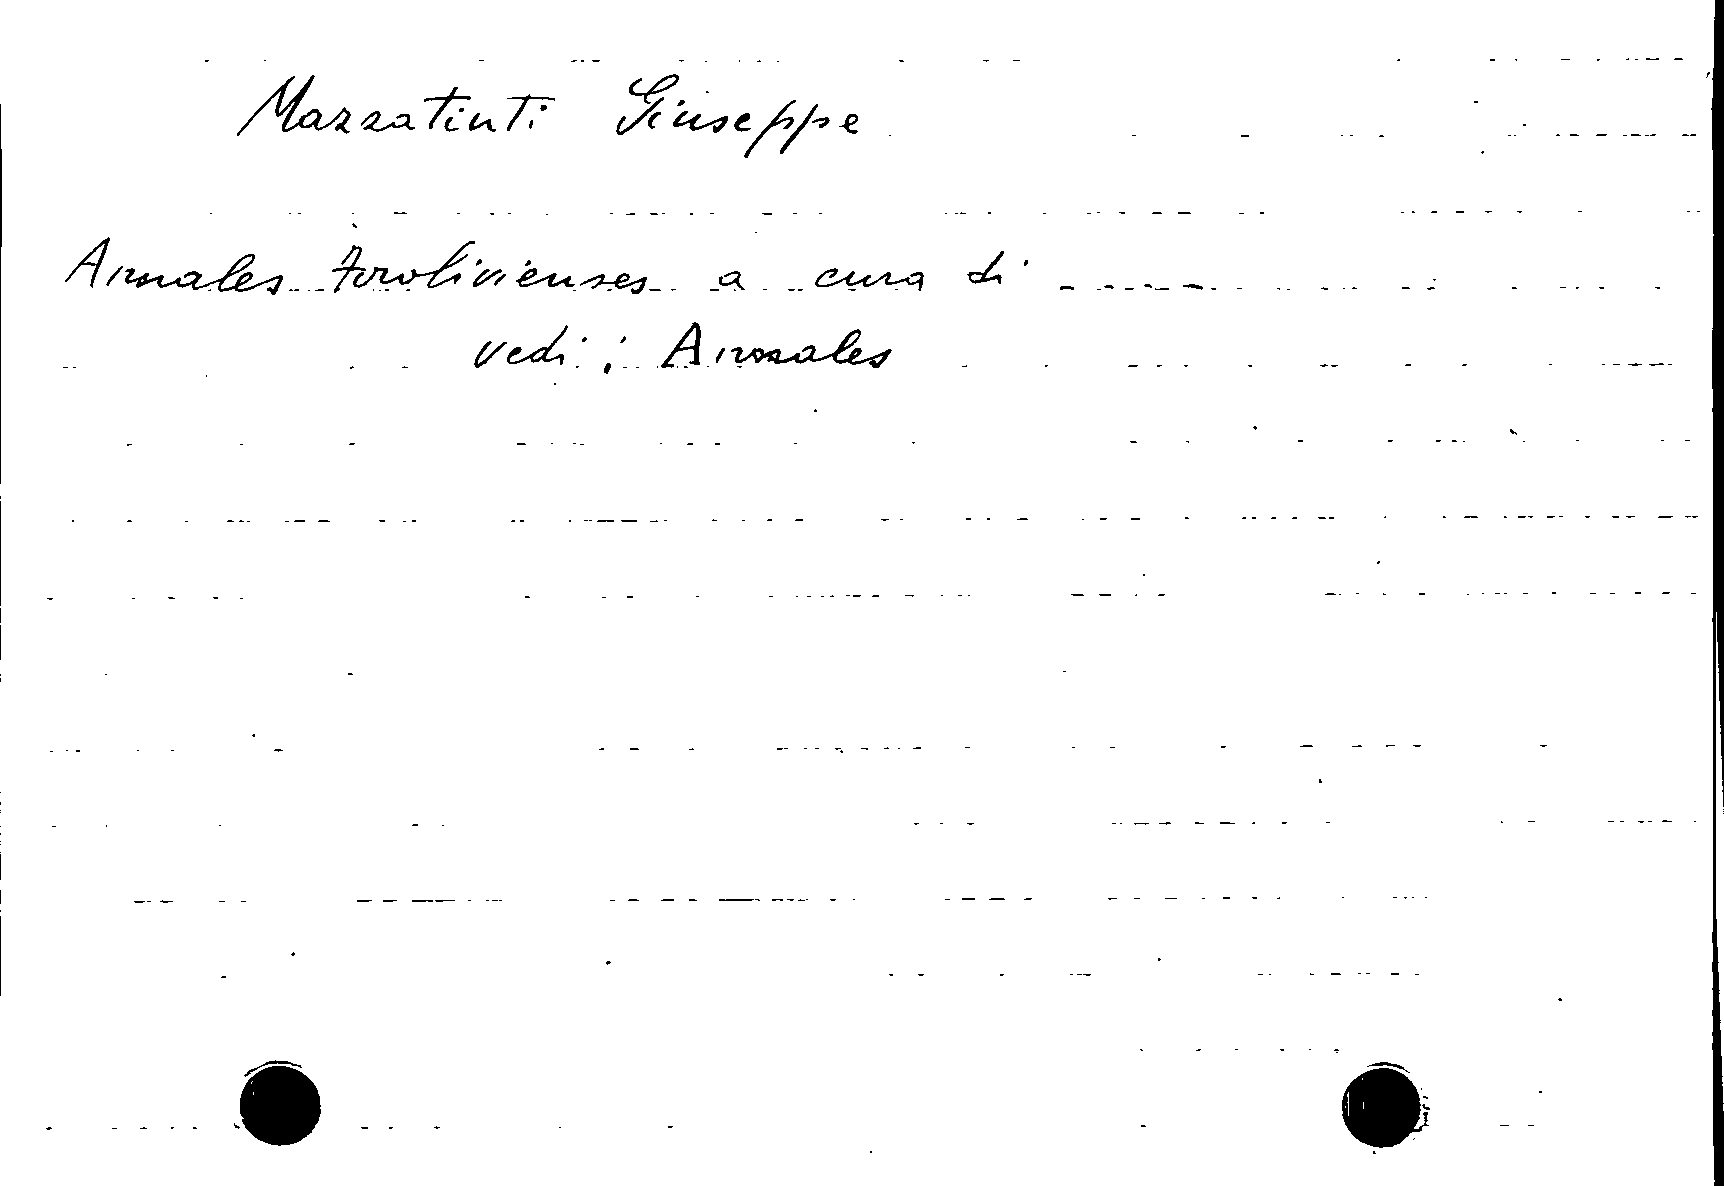 Mazzatinti Giuseppe
Annales forolivienses a cura di
vedi: Annales